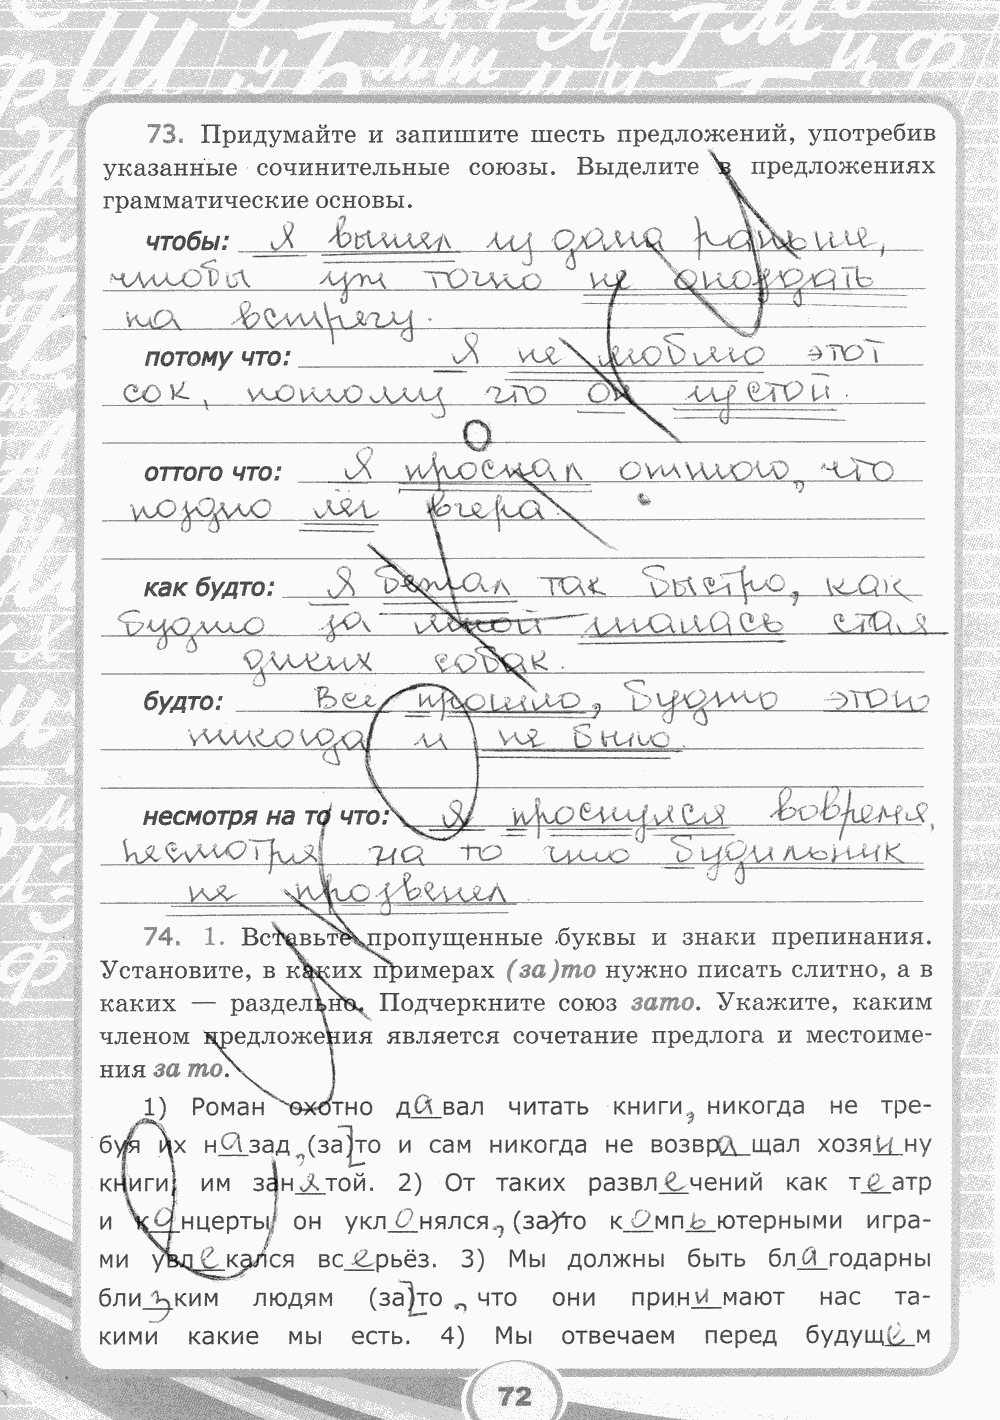 73. Придумайте и запишите шесть предложений, употребив
указанные сочинительные союзы. Выделите в предложениях
грамматические основы.
чтобы: Я вышел из дома раньше,
чтобы уж точно не опоздать
на встречу.
потому что: Я не люблю этот
сок, потому что он густой.
оттого что: Я проспал оттого, что
поздно лёг вчера.
как будто: Я бежал так быстро, как
будто за мной гналась стая
диких собак.
будто: Все прошло, будто этого
никогда и не было.
несмотря на то что: Я проснулся вовремя,
несмотря на то что будильник
не прозвенел
74. 1. Вставьте пропущенные буквы и знаки препинания.
Установите, в каких примерах (за)то нужно писать слитно, а в
каких — раздельно. Подчеркните союз зато. Укажите, каким
членом предложения является сочетание предлога и местоиме-
ния за то.
1) Роман охотно давал читать книги, никогда не тре-
буя их назад, (за)то и сам никогда не возвращал хозяину
книги, им занятой. 2) От таких развлечений как театр
и концерты он уклонялся, (за)то компьютерными игра-
ми увлекался всерьёз. 3) Мы должны быть благодарны
близким людям (за)то, что они принимают нас та-
кими какие мы есть. 4) Мы отвечаем перед будущем
72